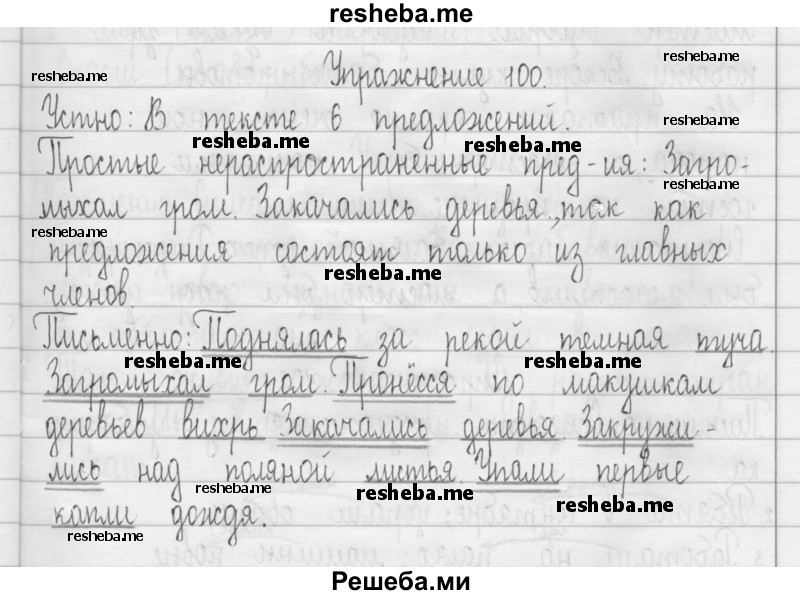 resheba.me
Упражнение 100.
resheba.me
resheba.me
Устно: В тексте 6 предложений.
resheba.me
resheba.me
resheba.me
Простые нераспространенные пред-ия: Загро-
resheba.me
мыхал гром. Закачались деревья., так как
resheba.me
предложения состоят только из главных
resheba.me
членов.
Письменно: Поднялась за рекой темная туча.
resheba.me
resheba.me
Загромыхал гром. Пронёсся по макушкам
деревьев вихрь. Закачались деревья. Закружи-
лись над поляной листья. Упали первые
resheba.me
resheba.me
resheba.me
капли дождя.
resheba.me
Решеба.ми